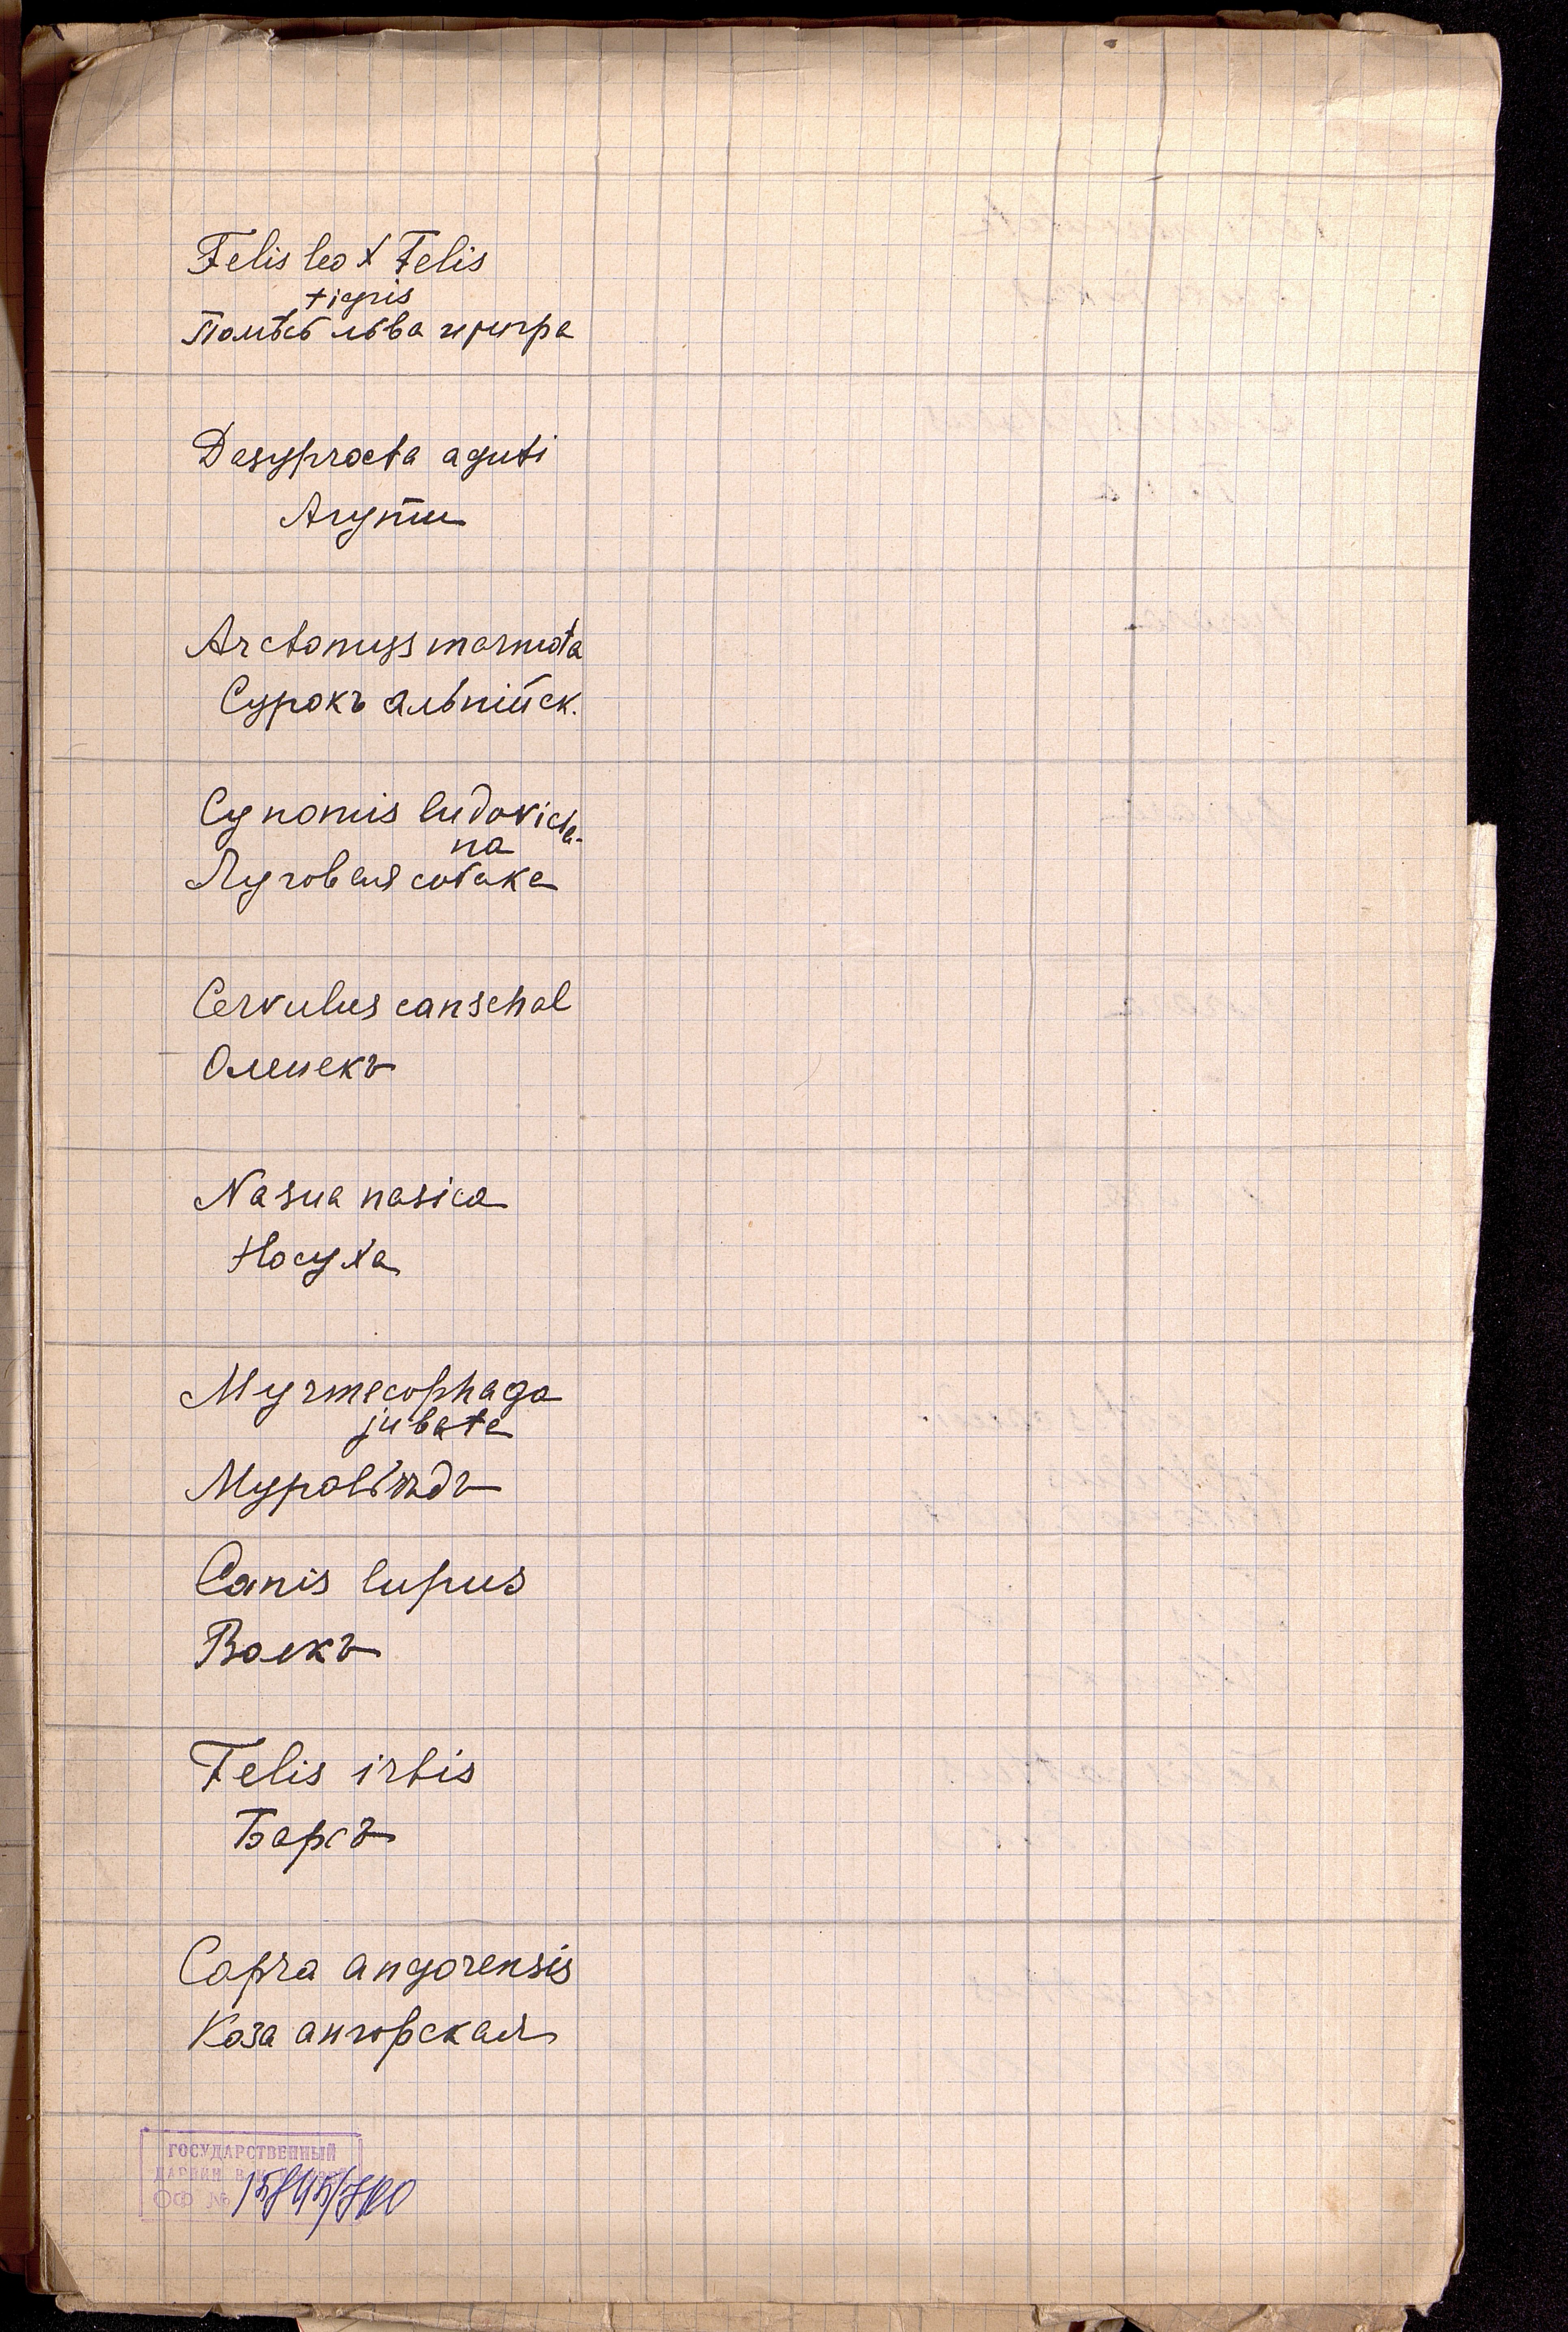 Felis leo × Felis
tigris
Помѣсь льва и тигра
Dasyprocta aguti
Агути
Arctomys marmota
Сурокъ альпійск.
Cynomis ludovicia-
na
Луговая собака
Cervulus canschal
Оленекъ
Nasua nasica
Носуха
Myrmecophaga
jubata
Муравьѣдъ
Canis lupus
Волкъ
Felis irbis
Барсъ
Capra angorensis
Коза ангорская
ГОСУДАРСТВЕННЫЙ
ОФ №